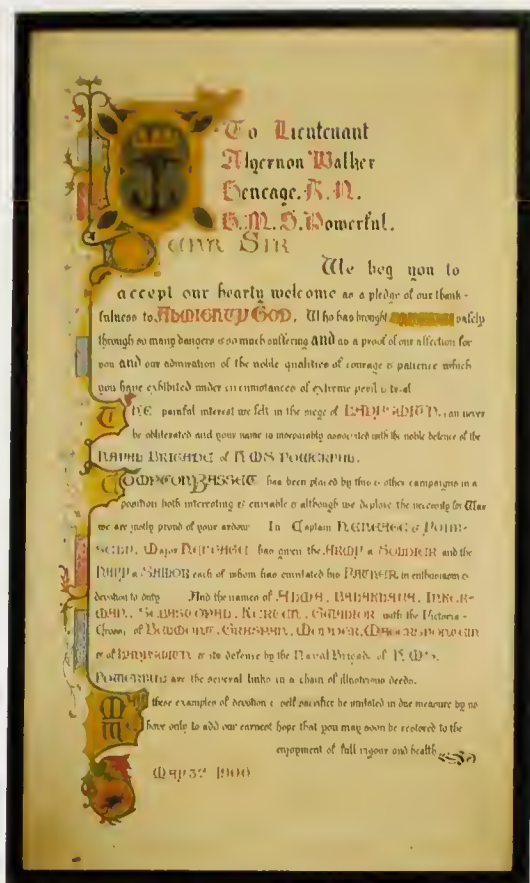 To Lieutenant
Algernon Walker
Heneage. R. N.
H. M. S. Powerful.
DEAR SIR
We beg you to
accept our hearty welcome as a pledge of our thank-
fulness to ALMIGHTY GOD, Who has brought safely
through so many dangers & so much suffering and as a proof of our affection for
you and our admiration of the noble qualities of courage & patience which
you have exhibited under circumstances of extreme peril & trial
THE painful interest we felt in the siege of LADYSMITH, can never
be obliterated and your name is inseparably associated with the noble defence of the
NAVAL BRIGADE of H M S POWERFUL.
COMPTON BASSETT has been placed by this & other campaigns in a
position both interesting & enviable & although we deplore the necessity for War
we are justly proud of your ardour In Captain HENEAGE
Major HENEAGE has given the ARMY a SOLDIER and the
NAVY a SAILOR each of whom has emulated his FATHER in enthusiasm &
devotion to duty And the names of ALMA, BALAKLAVA, INKER-
MAN, SEBASTOPOL, GWALIOR with the Victoria-
Cross; of BELMONT, GRASPAN, MODDER, MAGERSFONTEIN
& of LADYSMITH & its defence by the Naval Brigade of H. M. S.
POWERFUL are the several links in a chain of illustrious deeds.
these examples of devotion & self sacrifice be imitated in due measure by us
have only to add our earnest hope that you may soon be restored to the
enjoyment of full vigour and health
May 1900